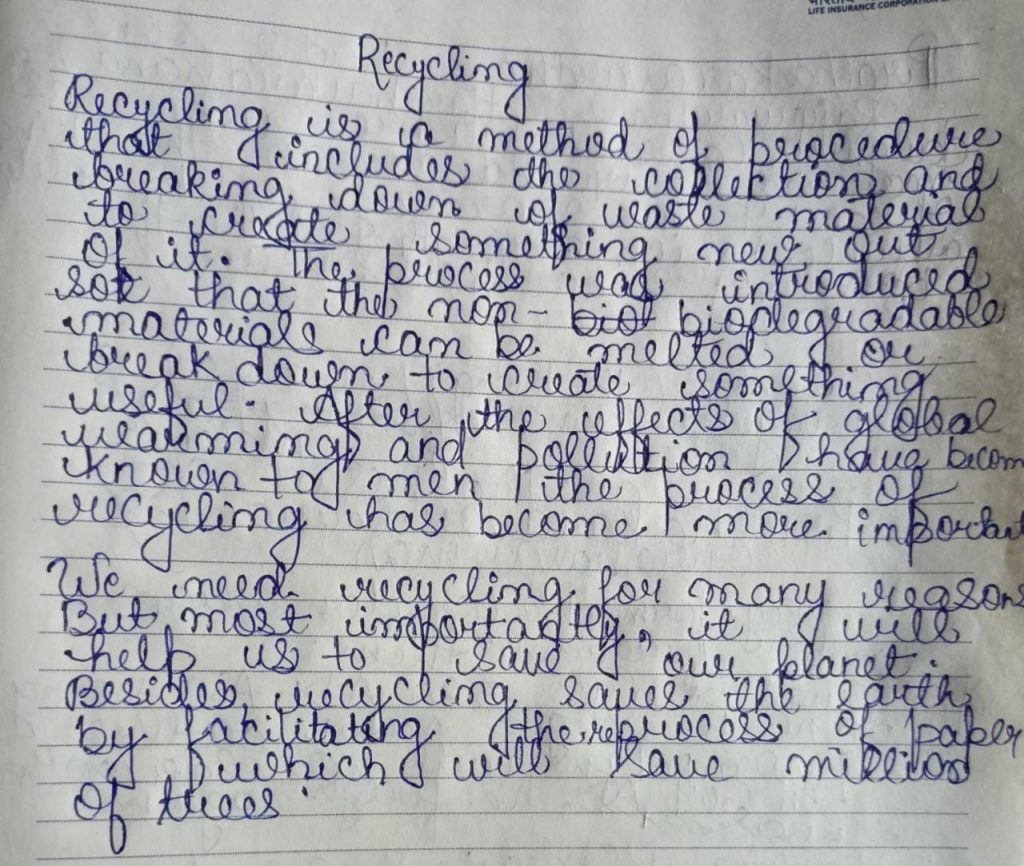 LIFE INSURANCE CORPORATION
Recycling
Recycling is a method of procedure
that includes the collection and
breaking down of waste material
to create something new out
of it. The process was introduced
so that the non- biodegradable
materials can be melted or
break down to create something
useful. After the effects of global
warming and pollution have becom
known to men the process of
recycling has become more important
We need recycling for many reasons
But most importantly, it will
help us to save our planet.
Besides, recycling saves the earth
by facilitating the reprocess of paper
which will save million
of trees.